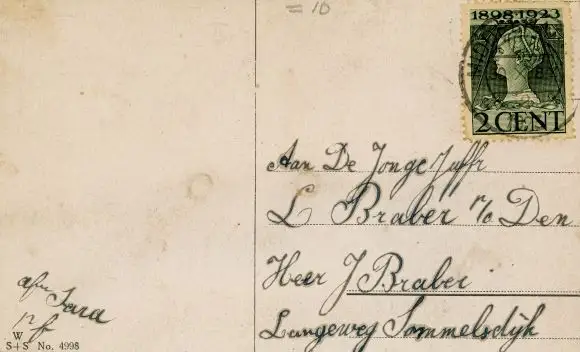 = 10
1898-1923
2 CENT
Aan De Jonge Juffr
L Braber p/o Den
Heer J Braber
Langeweg Sommelsdijk
afz Sara
W
S+S No. 4998